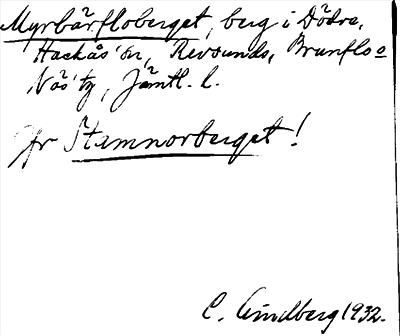 Myrbärfloberget, berg i Bodsjö,
Hackås' sn, Revsunds, Brunflo o
Näs' tg, Jämtl. l.
Jfr Stamnorberget!
C. Lindberg 1932.